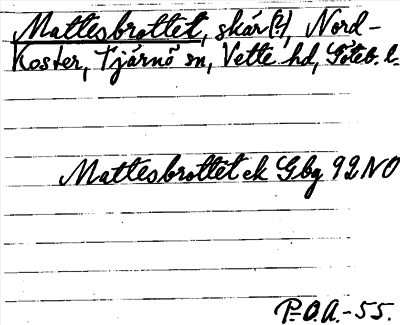 Mattesbrottet, skär(?), Nord-
Koster, Tjärnö sn, Vette hd, Göteb. l.
Mattesbrottet ek Gbg 92 NO
P.O.A.-55.